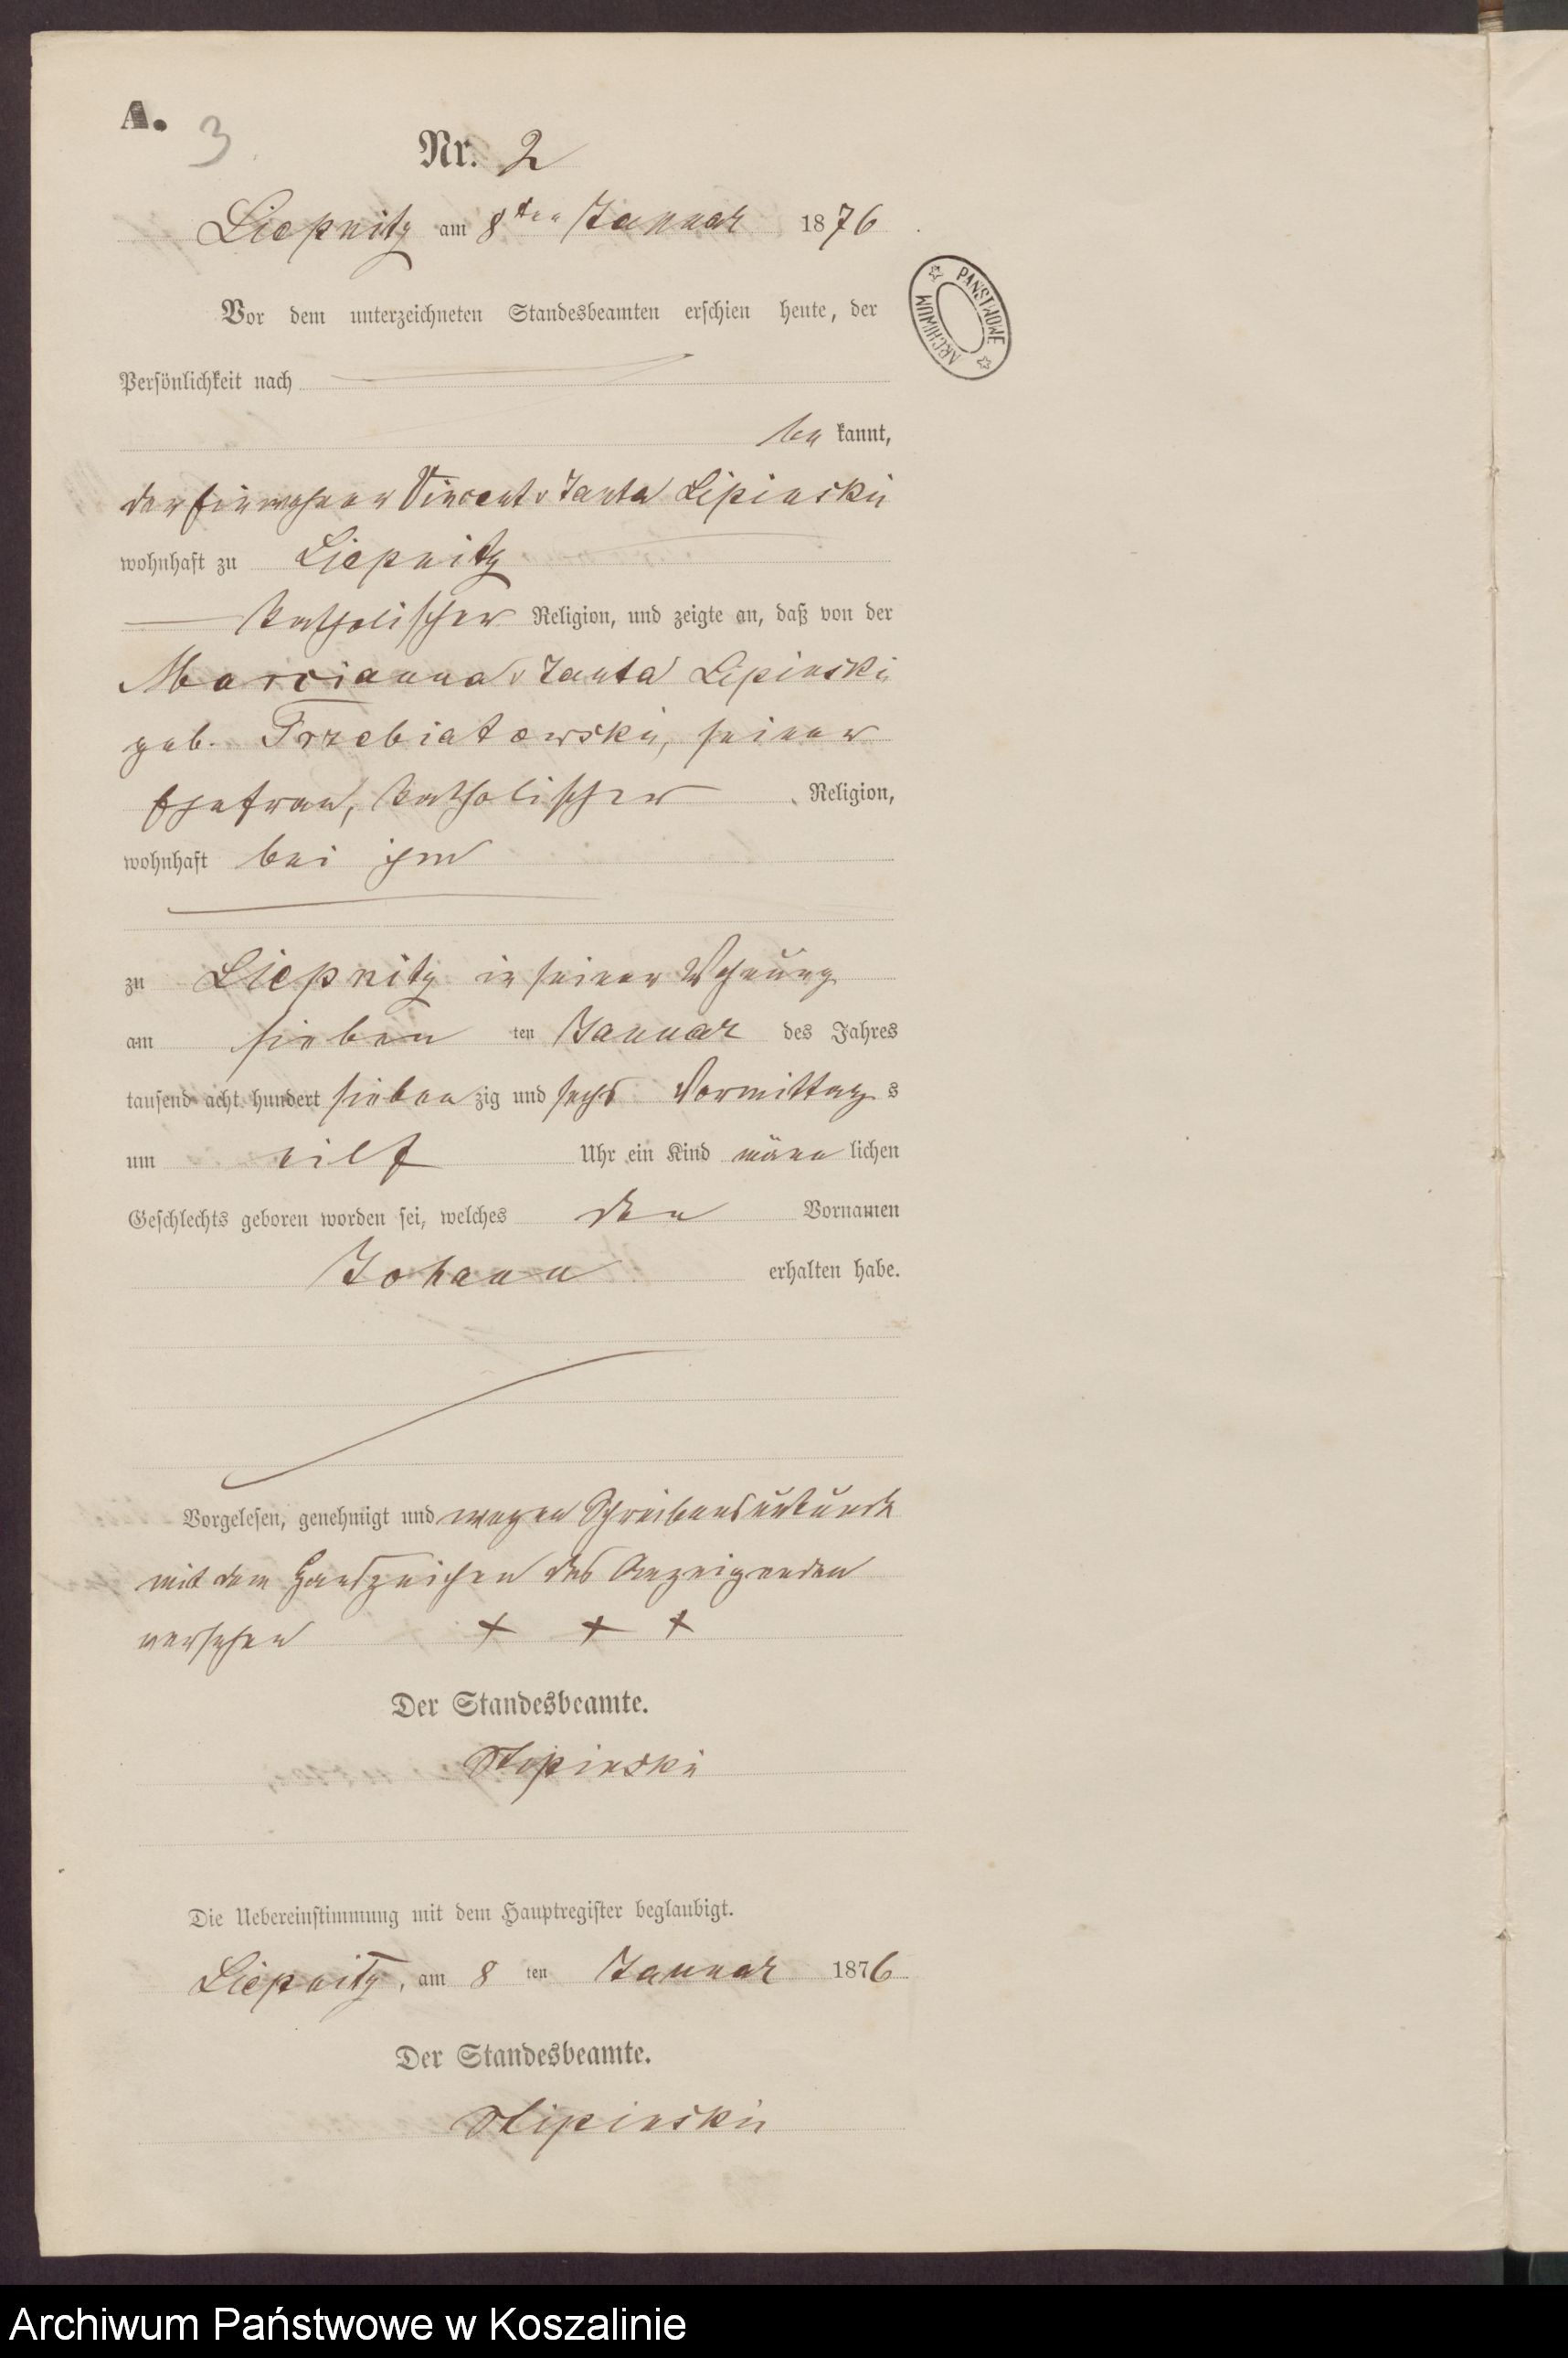 A.
3.
Nr. 2
Liepnitz am 8ten Januar 1876
PANSTWOWE ARCHIWUM
Vor dem unterzeichneten Standesbeamten erschien heute, der
Persönlichkeit nach
be kannt,
der Einwohner Vincent v Janta Lipinski
wohnhaft zu Liepnitz
katholischer Religion, und zeigte an, daß von der
Marcianna v Janta Lipinski
geb. Trzebiatowski, seiner
Ehefrau, katholischer Religion,
wohnhaft bei ihm
zu Liepnitz in seiner Wohnung
am sieben ten Januar des Jahres
tausend acht hundert sieben zig und sechs Vormittag s
um eilf Uhr ein Kind männ lichen
Geschlechts geboren worden sei, welches den Vornamen
Johann erhalten habe.
Vorgelesen, genehmigt und wegen Schreibensunkunde
mit dem Handzeichen des Anzeigenden
versehen + + +
Der Standesbeamte.
Die Uebereinstimmung mit dem Hauptregister beglaubigt.
Liepnitz, am 8 ten Januar 1876
Der Standesbeamte.
Archiwum Państwowe w Koszalinie